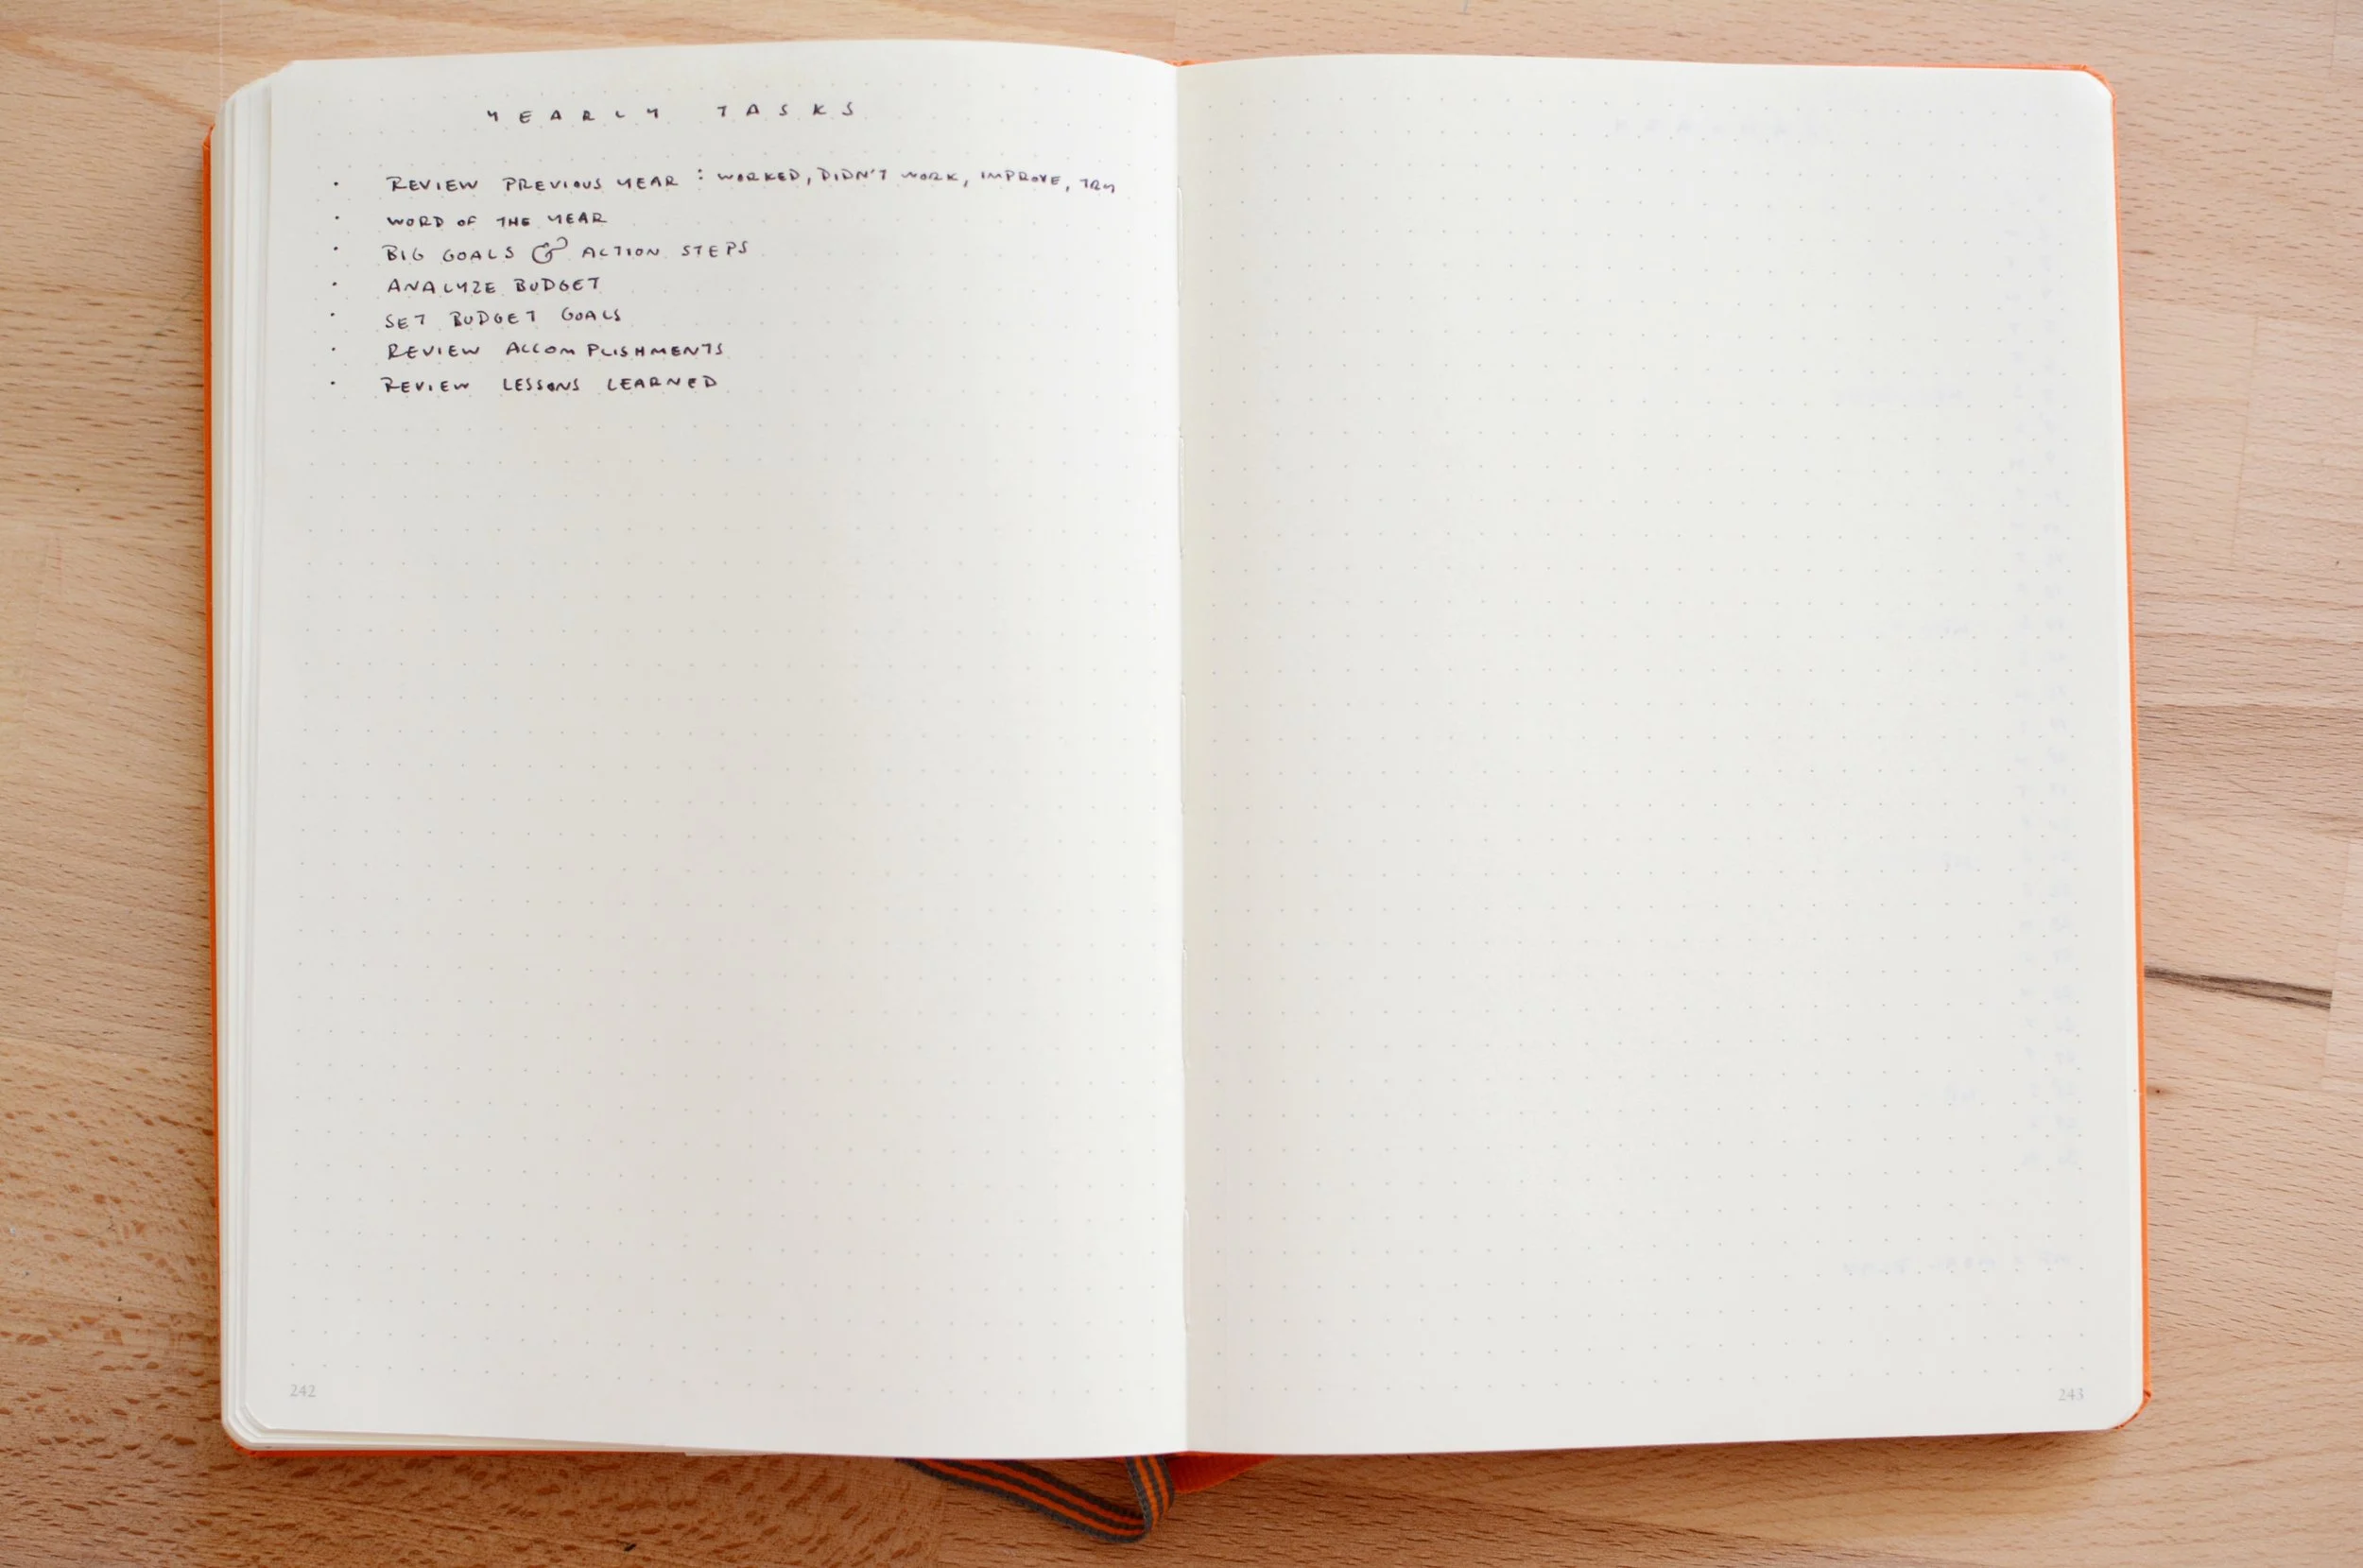 YEARLY TASKS
· REVIEW PREVIOUS YEAR : WORKED, DIDN'T WORK, IMPROVE, TRY
· WORD OF THE YEAR
· BIG GOALS & ACTION STEPS
· ANALYZE BUDGET
· SET BUDGET GOALS
· REVIEW ACCOMPLISHMENTS
· REVIEW LESSONS LEARNED
242
243